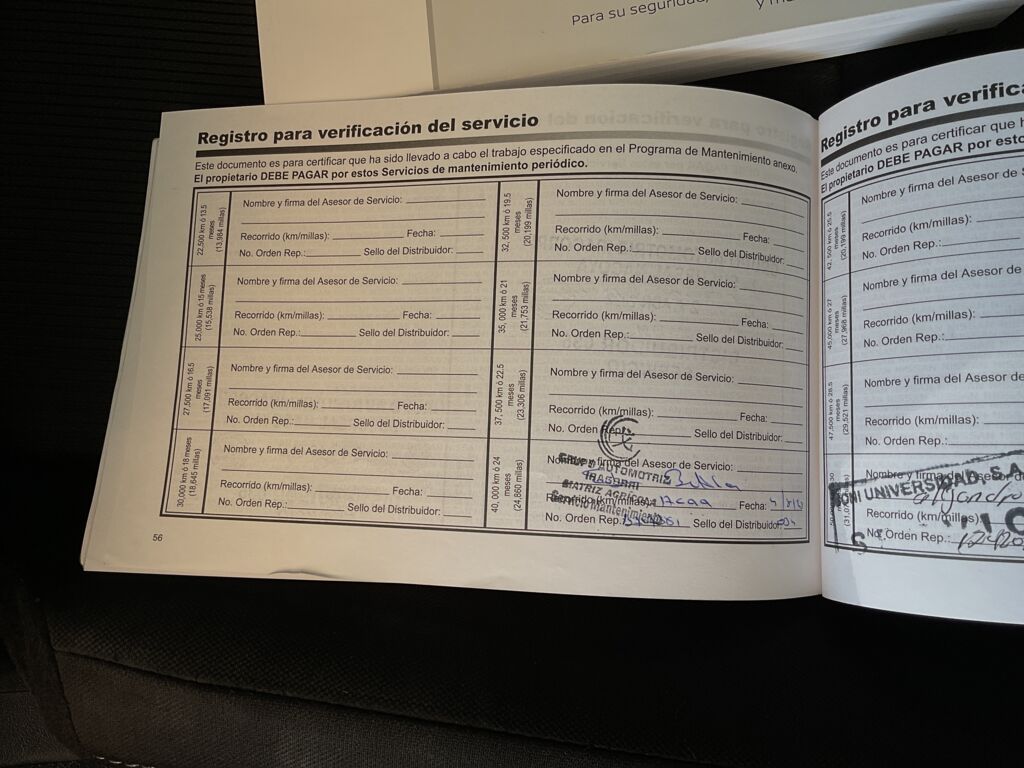 Para su seguridad,
Registro para verificación del servicio
Este documento es para certificar que ha sido llevado a cabo el trabajo especificado en el Programa de Mantenimiento anexo.
El propietario DEBE PAGAR por estos Servicios de mantenimiento periódico.
22,500 km ó 13.5 meses (13,984 millas)
Nombre y firma del Asesor de Servicio:
Recorrido (km/millas): Fecha:
No. Orden Rep.: Sello del Distribuidor:
25,000 km ó 15 meses (15,538 millas)
Nombre y firma del Asesor de Servicio:
Recorrido (km/millas): Fecha:
No. Orden Rep.: Sello del Distribuidor:
27,500 km ó 16.5 meses (17,091 millas)
Nombre y firma del Asesor de Servicio:
Recorrido (km/millas): Fecha:
No. Orden Rep.: Sello del Distribuidor:
30,000 km ó 18 meses (18,645 millas)
Nombre y firma del Asesor de Servicio:
Recorrido (km/millas): Fecha:
No. Orden Rep.: Sello del Distribuidor:
32, 500 km ó 19.5 meses (20,199 millas)
Nombre y firma del Asesor de Servicio:
Recorrido (km/millas): Fecha:
No. Orden Rep.: Sello del Distribuidor:
35, 000 km ó 21 meses (21,753 millas)
Nombre y firma del Asesor de Servicio:
Recorrido (km/millas): Fecha:
No. Orden Rep.: Sello del Distribuidor:
37, 500 km ó 22.5 meses (23,306 millas)
Nombre y firma del Asesor de Servicio:
Recorrido (km/millas): Fecha:
No. Orden Rep.: Sello del Distribuidor:
40, 000 km ó 24 meses (24,860 millas)
Nombre y firma del Asesor de Servicio:
AUTOMOTRIZ
MATRIZ AGRÍCOLA
Mantenimiento
Recorrido (km/millas): Fecha:
No. Orden Rep.: Sello del Distribuidor:
56
Registro para verifica
Este documento es para certificar que h
El propietario DEBE PAGAR por esto
42, 500 km ó 25.5 meses (20,199 millas)
Nombre y firma del Asesor de S
Recorrido (km/millas):
No. Orden Rep.:
45,000 km ó 27 meses (27,968 millas)
Nombre y firma del Asesor de
Recorrido (km/millas):
No. Orden Rep.:
47,500 km ó 28.5 meses (29,521 millas)
Nombre y firma del Asesor de
Recorrido (km/millas):
No. Orden Rep.:
Nombre y firma del Asesor de
UNIVERSIDAD S.A
Recorrido (km/millas):
No. Orden Rep.: